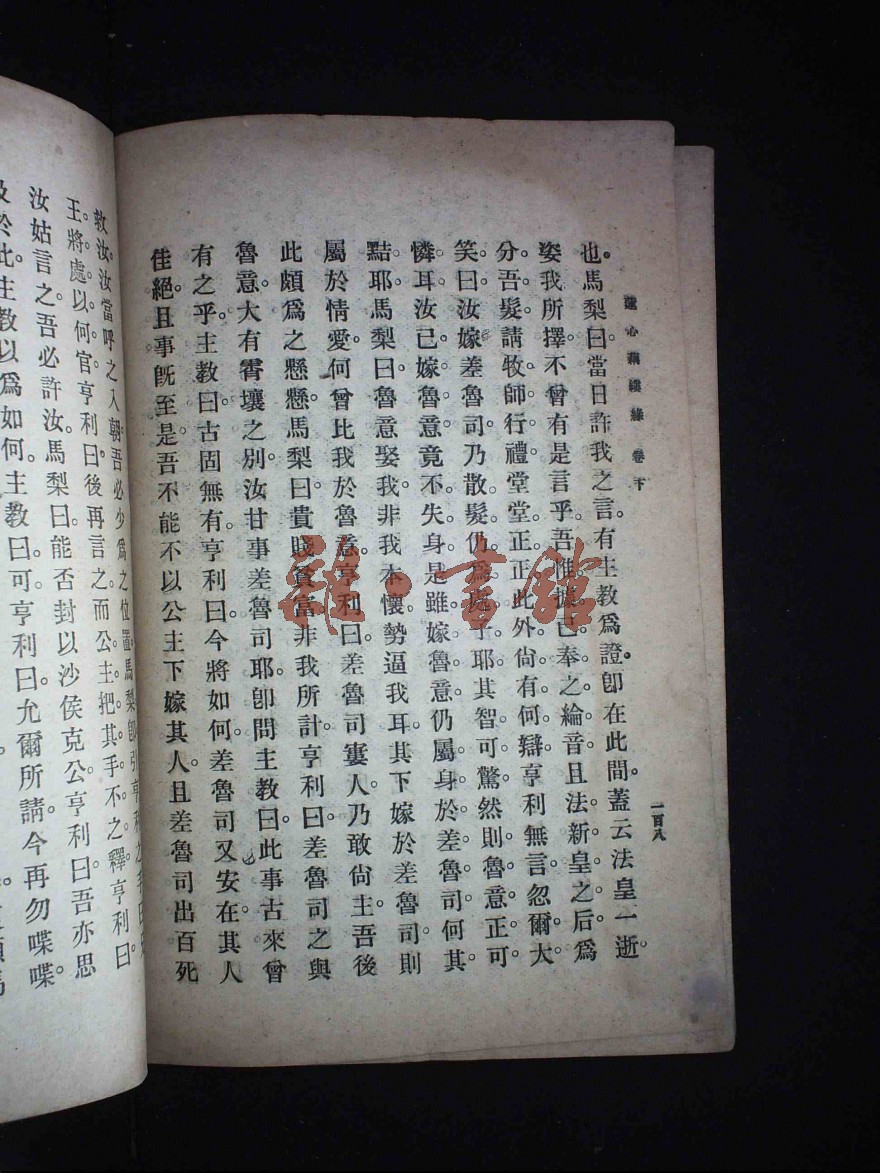 蓮心藕縷緣 卷下
一百八
也。馬梨曰當日許我之言。有主教爲證卽在此間。蓋云法皇一逝。
姿我所擇不曾有是言乎吾惟據已奉之綸音且法新皇之后。爲
分。吾髮請牧師行禮堂堂正正此外尙有何辯亨利無言。忽爾大
笑。曰汝嫁差魯司乃散髮仍爲處子耶其智可驚然則魯意正可
憐耳汝已嫁魯意竟不失身是雖嫁魯意仍屬身於差魯司何其
黠耶。馬梨曰魯意娶我。非我本懷勢逼我耳其下嫁於差魯司則
屬於情愛何曾比我於魯意亨利曰。差魯司窶人乃敢尙主吾後
此頗爲之懸懸。馬梨曰貴賤貧富非我所計亨利曰。差魯司之與
魯意。大有霄壤之別汝甘事差魯司耶卽問主教曰。此事古來曾
有之乎。主教曰古固無有。亨利曰今將如何差魯司又安在其人
佳絕。且事旣至是吾不能不以公主下嫁其人。且差魯司出百死
敕汝。汝當呼之入朝吾必少爲之位置。馬梨卽引亨利之手曰
王。將處以何官亨利曰後再言之而公主把其手不之釋亨利曰
汝姑言之。吾必許汝。馬梨曰。能否封以沙侯克公亨利曰吾亦思
及於此。主教以爲如何。主教曰可亨利曰允爾所請今再勿喋喋。
雜·書館